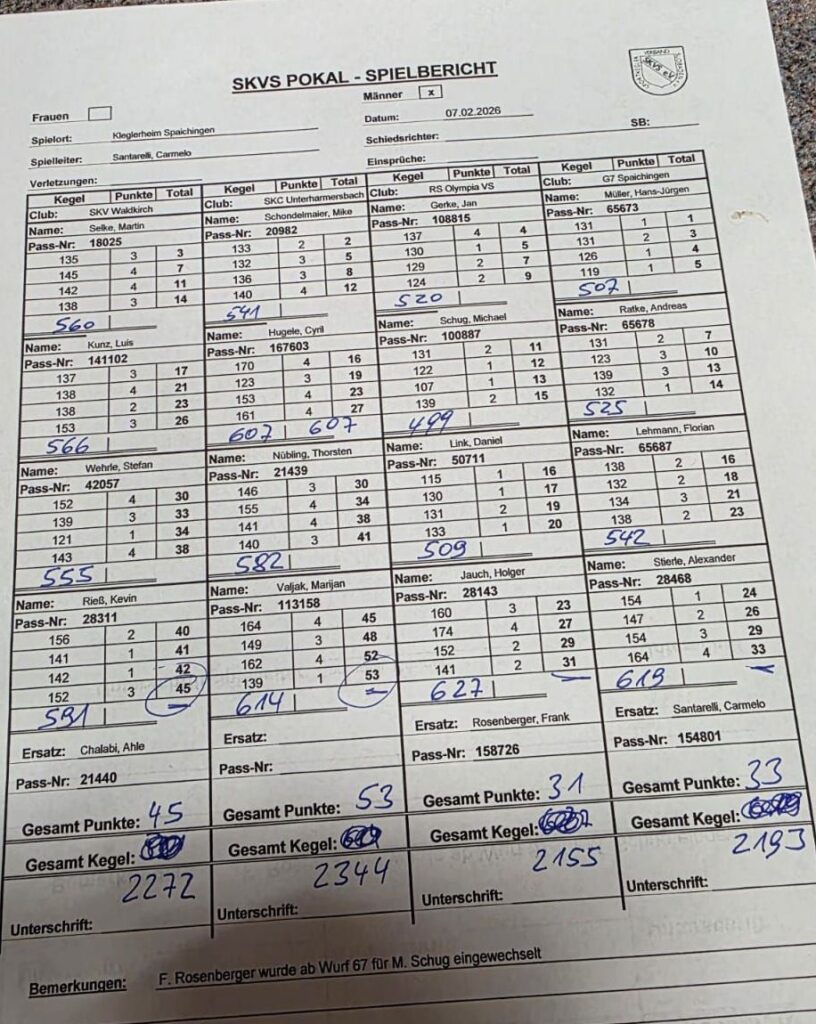 SKVS POKAL - SPIELBERICHT
VERBAND
SKVS e.V.
Frauen
Männer x
Spielort: Kleglerheim Spaichingen
Datum: 07.02.2026
Spielleiter: Santarelli, Carmelo
Schiedsrichter:
SB:
Verletzungen:
Einsprüche:
Kegel Punkte Total
Club: SKV Waldkirch
Name: Selke, Martin
Pass-Nr: 18025
135 3 3
145 4 7
142 4 11
138 3 14
560
Name: Kunz, Luis
Pass-Nr: 141102
137 3 17
138 4 21
138 2 23
153 3 26
566
Name: Wehrle, Stefan
Pass-Nr: 42057
152 4 30
139 3 33
121 1 34
143 4 38
555
Name: Rieß, Kevin
Pass-Nr: 28311
156 2 40
141 1 41
142 1 42
152 3 45
591
Ersatz: Chalabi, Ahle
Pass-Nr: 21440
Gesamt Punkte: 45
Gesamt Kegel:
2272
Unterschrift:
Kegel Punkte Total
Club: SKC Unterharmersbach
Name: Schondelmaier, Mike
Pass-Nr: 20982
133 2 2
132 3 5
136 3 8
140 4 12
541
Name: Hugele, Cyril
Pass-Nr: 167603
170 4 16
123 3 19
153 4 23
161 4 27
607 607
Name: Nübling, Thorsten
Pass-Nr: 21439
146 3 30
155 4 34
141 4 38
140 3 41
582
Name: Valjak, Marijan
Pass-Nr: 113158
164 4 45
149 3 48
162 4 52
139 1 53
614
Ersatz:
Pass-Nr:
Gesamt Punkte: 53
Gesamt Kegel:
2344
Unterschrift:
Kegel Punkte Total
Club: RS Olympia VS
Name: Gerke, Jan
Pass-Nr: 108815
137 4 4
130 1 5
129 2 7
124 2 9
520
Name: Schug, Michael
Pass-Nr: 100887
131 2 11
122 1 12
107 1 13
139 2 15
499
Name: Link, Daniel
Pass-Nr: 50711
115 1 16
130 1 17
131 2 19
133 1 20
509
Name: Jauch, Holger
Pass-Nr: 28143
160 3 23
174 4 27
152 2 29
141 2 31
627
Ersatz: Rosenberger, Frank
Pass-Nr: 158726
Gesamt Punkte: 31
Gesamt Kegel:
2155
Unterschrift:
Kegel Punkte Total
Club: G7 Spaichingen
Name: Müller, Hans-Jürgen
Pass-Nr: 65673
131 1 1
131 2 3
126 1 4
119 1 5
507
Name: Ratke, Andreas
Pass-Nr: 65678
131 2 7
123 3 10
139 3 13
132 1 14
525
Name: Lehmann, Florian
Pass-Nr: 65687
138 2 16
132 2 18
134 3 21
138 2 23
542
Name: Stierle, Alexander
Pass-Nr: 28468
154 1 24
147 2 26
154 3 29
164 4 33
619
Ersatz: Santarelli, Carmelo
Pass-Nr: 154801
Gesamt Punkte: 33
Gesamt Kegel:
2193
Unterschrift:
Bemerkungen: F. Rosenberger wurde ab Wurf 67 für M. Schug eingewechselt